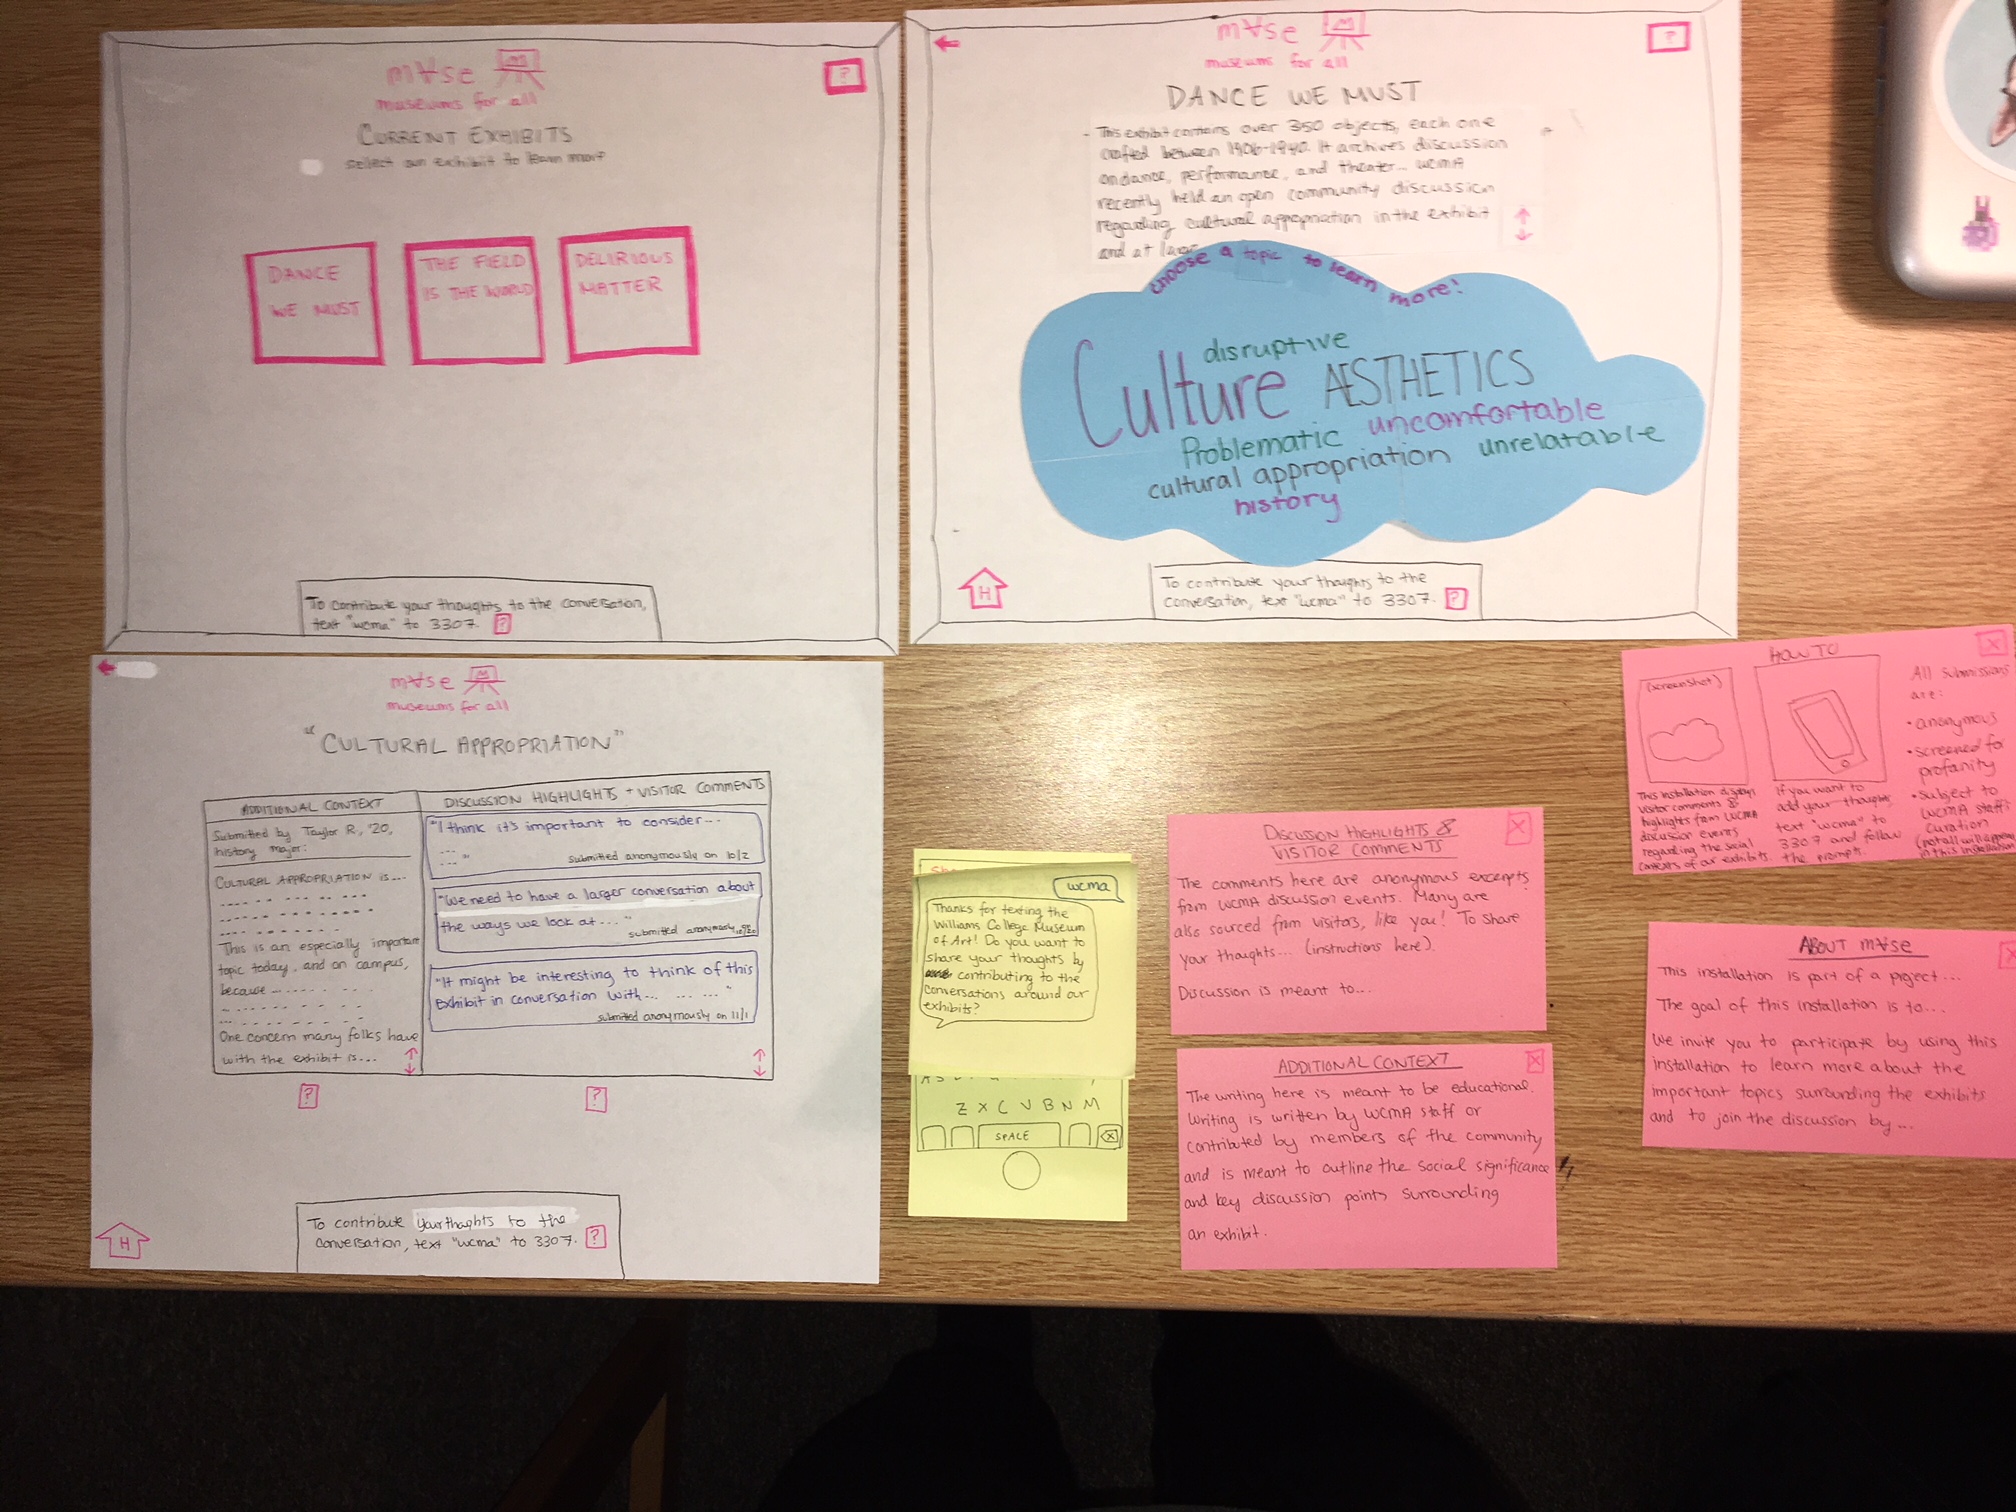 m∀se
museums for all
CURRENT EXHIBITS
select an exhibit to learn more
?
DANCE
WE MUST
THE FIELD
IS THE WORLD
DELIRIOUS
MATTER
To contribute your thoughts to the conversation,
text "wcma" to 3307. ?
m∀se
museums for all
?
DANCE WE MUST
- This exhibit contains over 350 objects, each one
crafted between 1906-1940. It archives discussion
on dance, performance, and theater... WCMA
recently held an open community discussion
regarding cultural appropriation in the exhibit
and at large
choose a topic to learn more!
disruptive
Culture AESTHETICS
Problematic uncomfortable
cultural appropriation unrelatable
history
H
To contribute your thoughts to the
conversation, text "wcma" to 3307. ?
m∀se
museums for all
"CULTURAL APPROPRIATION"
ADDITIONAL CONTEXT
Submitted by Taylor R., '20,
history major:
CULTURAL APPROPRIATION is....
This is an especially important
topic today, and on campus,
because
One concern many folks have
with the exhibit is...
?
DISCUSSION HIGHLIGHTS + VISITOR COMMENTS
"I think it's important to consider...
... "
submitted anonymously on 10/2
"We need to have a larger conversation about
the ways we look at.... "
submitted anonymously
"It might be interesting to think of this
exhibit in conversation with... ... ... "
submitted anonymously on 11/1
?
H
To contribute your thoughts to the
conversation, text "wcma" to 3307. ?
wcma
Thanks for texting the
Williams College Museum
of Art! Do you want to
share your thoughts by
contributing to the
conversations around our
exhibits?
Z X C V B N M
SPACE
X
DISCUSSION HIGHLIGHTS &
VISITOR COMMENTS
X
The comments here are anonymous excerpts
from WCMA discussion events. Many are
also sourced from visitors, like you! To share
your thoughts... (instructions here).
Discussion is meant to...
ADDITIONAL CONTEXT
X
The writing here is meant to be educational.
Writing is written by WCMA staff or
contributed by members of the community
and is meant to outline the social significance
and key discussion points surrounding
an exhibit.
HOW TO
X
(screenshot)
This installation displays
visitor comments &
highlights from WCMA
discussion events
regarding the social
contexts of our exhibits.
If you want to
add your thoughts,
text "wcma" to
3307 and follow
the prompts.
All submissions
are:
• anonymous
• screened for
profanity
• subject to
WCMA staff
curation
(not all will appear
in this installation
ABOUT m∀se
X
This installation is part of a project...
The goal of this installation is to...
We invite you to participate by using this
installation to learn more about the
important topics surrounding the exhibits
and to join the discussion by...